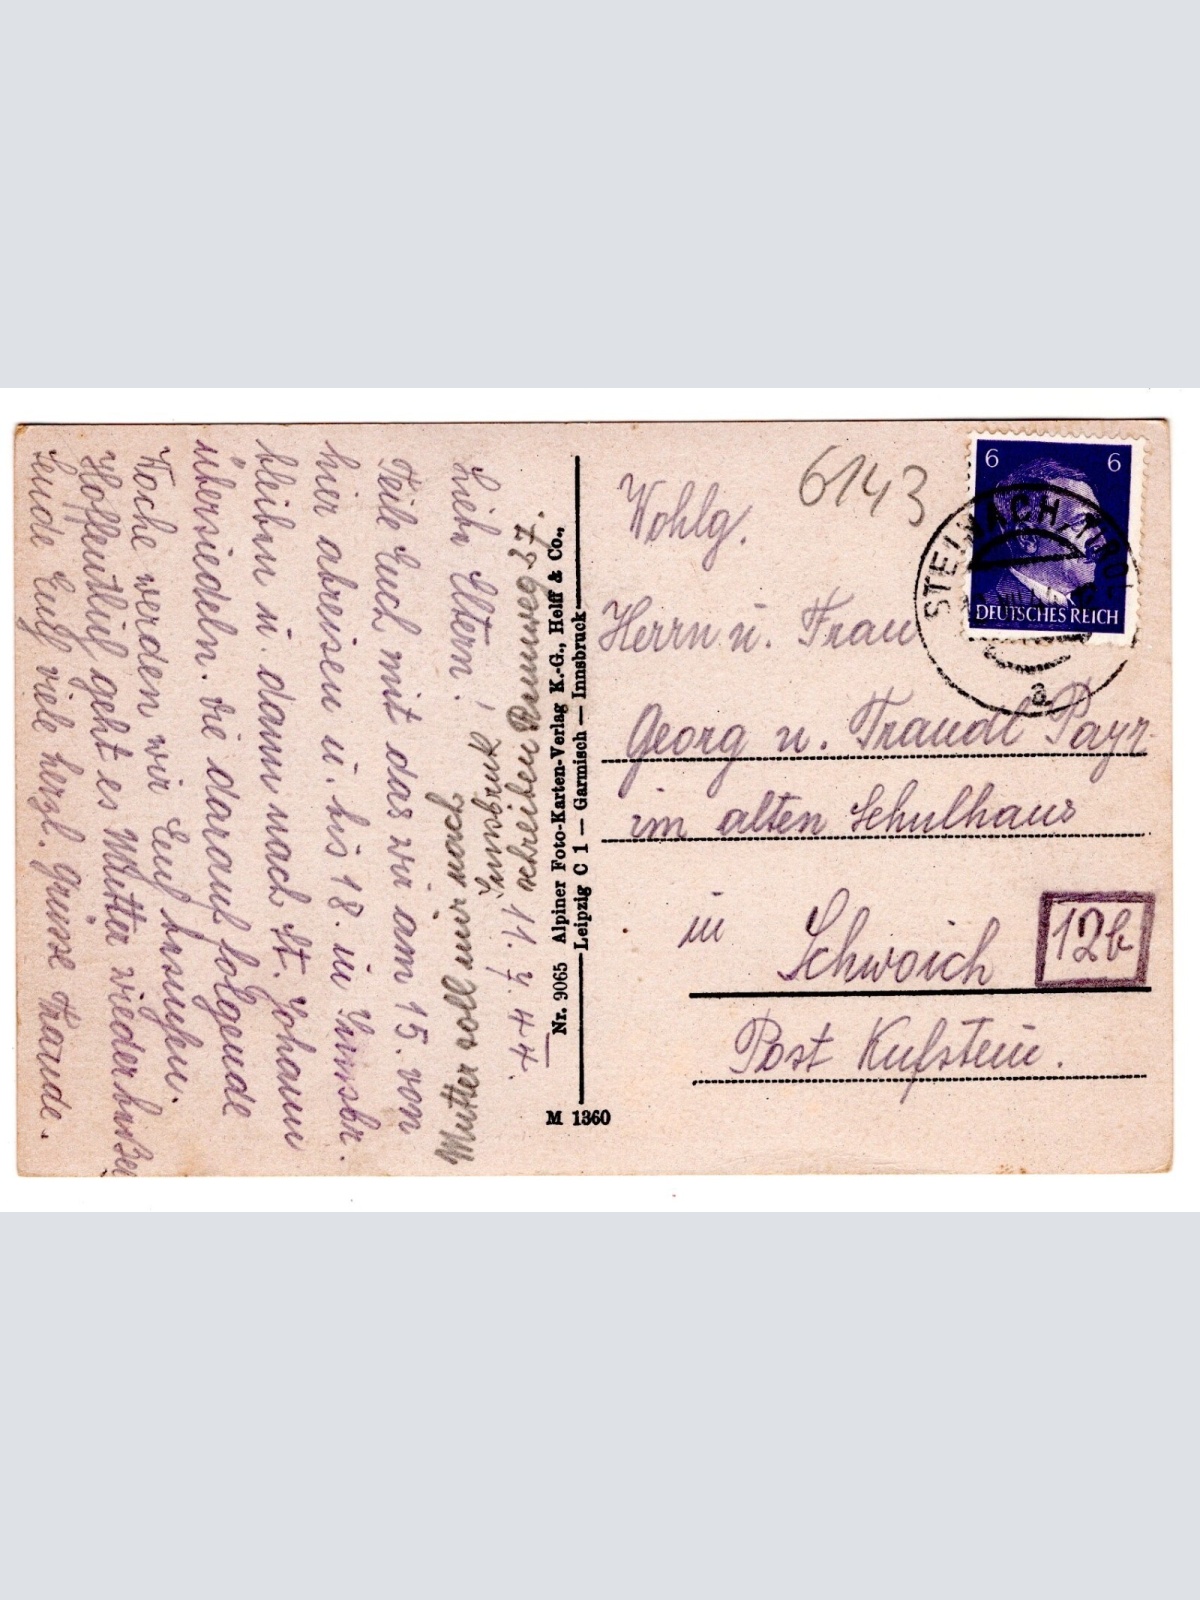 11. 7. 44.
Liebe Eltern!
Teile Euch mit das wir am 15. von
hier abreisen u. bis 18. in Innsbr.
bleiben u. dann nach St. Johann
übersiedeln. die darauf folgende
Woche werden wir Euch besuchen.
Hoffentlich geht es Mutter wieder besser
sende Euch viele herzl. Grüsse Traude.
Mutter soll mir nach
Innsbruk
schreiben Rennweg 37.
Nr. 9065 Alpiner Foto-Karten-Verlag K.-G., Helff & Co.,
Leipzig C 1 — Garmisch — Innsbruck
M 1360
6143
6 6
DEUTSCHES REICH
STEINACH/TIROL
a
Wohlg.
Herrn u. Frau
Georg u. Traudl Payr.
im alten Schulhaus
in Schwoich
12b
Post Kufstein.